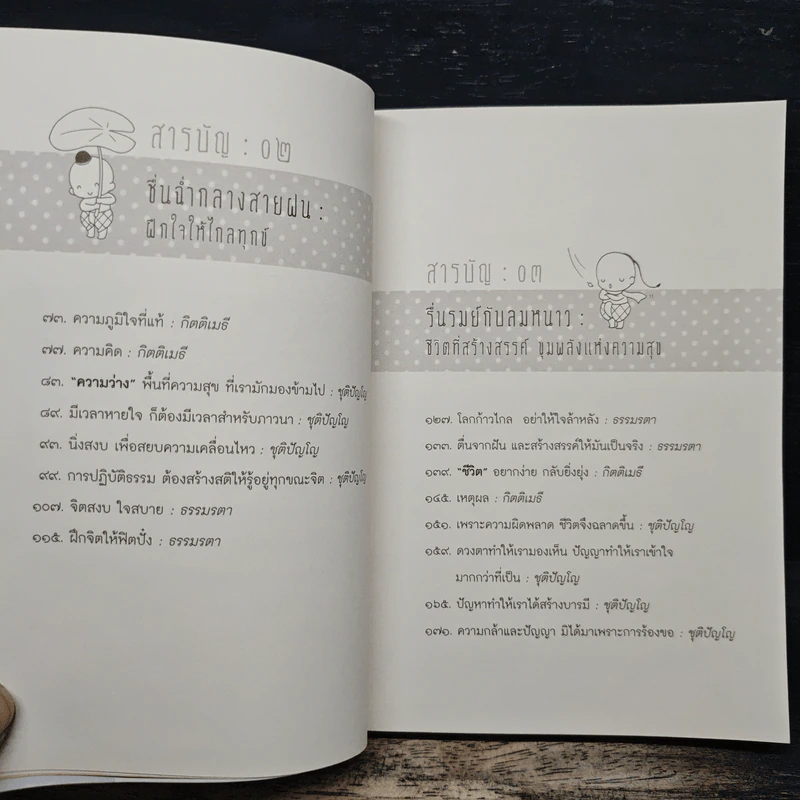 สารบัญ : ๐๒
ชื่นฉ่ำกลางสายฝน :
ฝึกใจให้ไกลทุกข์
๗๓. ความภูมิใจที่แท้ : กิตติเมธี
๗๗. ความคิด : กิตติเมธี
๘๓. “ความว่าง” พื้นที่ความสุข ที่เรามักมองข้ามไป : ชุติปัญโญ
๘๙. มีเวลาหายใจ ก็ต้องมีเวลาสำหรับภาวนา : ชุติปัญโญ
๙๓. นิ่งสงบ เพื่อสยบความเคลื่อนไหว : ชุติปัญโญ
๙๙. การปฏิบัติธรรม ต้องสร้างสติให้รู้อยู่ทุกขณะจิต : ชุติปัญโญ
๑๐๗. จิตสงบ ใจสบาย : ธรรมรตา
๑๑๕. ฝึกจิตให้ฟิตปั๋ง : ธรรมรตา
สารบัญ : ๐๓
รื่นรมย์กับลมหนาว :
ชีวิตที่สร้างสรรค์ ขุมพลังแห่งความสุข
๑๒๗. โลกก้าวไกล อย่าให้ใจล้าหลัง : ธรรมรตา
๑๓๓. ตื่นจากฝัน และสร้างสรรค์ให้มันเป็นจริง : ธรรมรตา
๑๓๙. “ชีวิต” อยากง่าย กลับยิ่งยุ่ง : กิตติเมธี
๑๔๕. เหตุผล : กิตติเมธี
๑๕๑. เพราะความผิดพลาด ชีวิตจึงฉลาดขึ้น : ชุติปัญโญ
๑๕๙. ดวงตาทำให้เรามองเห็น ปัญญาทำให้เราเข้าใจ
มากกว่าที่เป็น : ชุติปัญโญ
๑๖๕. ปัญหาทำให้เราได้สร้างบารมี : ชุติปัญโญ
๑๗๑. ความกล้าและปัญญา มิได้มาเพราะการร้องขอ : ชุติปัญโญ